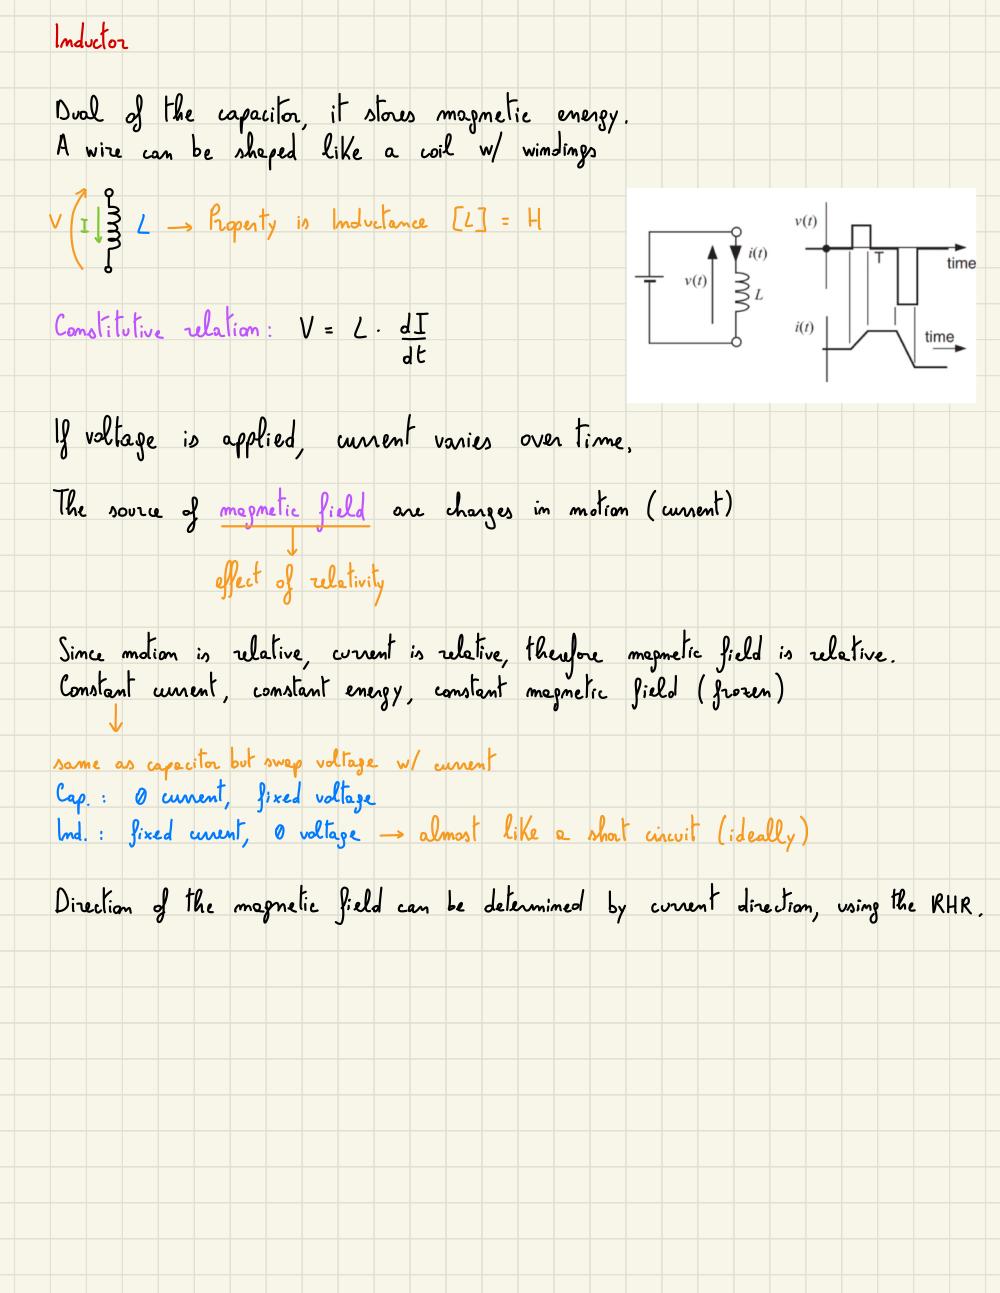 Inductor
Dual of the capacitor, it stores magnetic energy.
A wire can be shaped like a coil w/ windings
V I L → Property is Inductance [L] = H
v(t)
T
time
i(t)
v(t)
L
i(t)
time
Constitutive relation: V = L · dI/dt
If voltage is applied, current varies over time.
The source of magnetic field are charges in motion (current)
effect of relativity
Since motion is relative, current is relative, therefore magnetic field is relative.
Constant current, constant energy, constant magnetic field (frozen)
same as capacitor but swap voltage w/ current
Cap.: 0 current, fixed voltage
Ind.: fixed current, 0 voltage → almost like a short circuit (ideally)
Direction of the magnetic field can be determined by current direction, using the RHR.